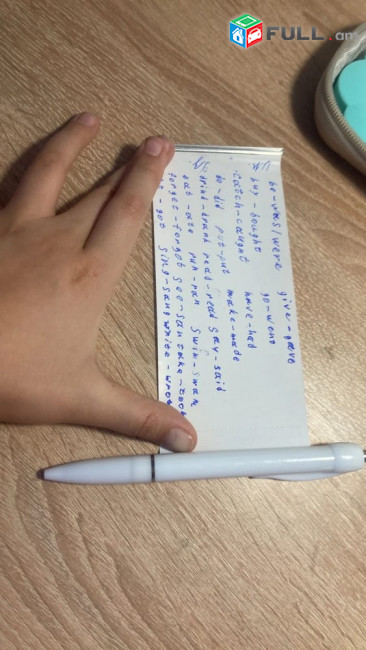 FULL.am
be-was/were give-gave
buy-bought go-went
catch-caught have-had
do-did put-put make-made
drink-drank read-read say-said
eat-ate run-ran swim-swam
forget-forgot see-saw take-took
t-got sing-sang write-wrote